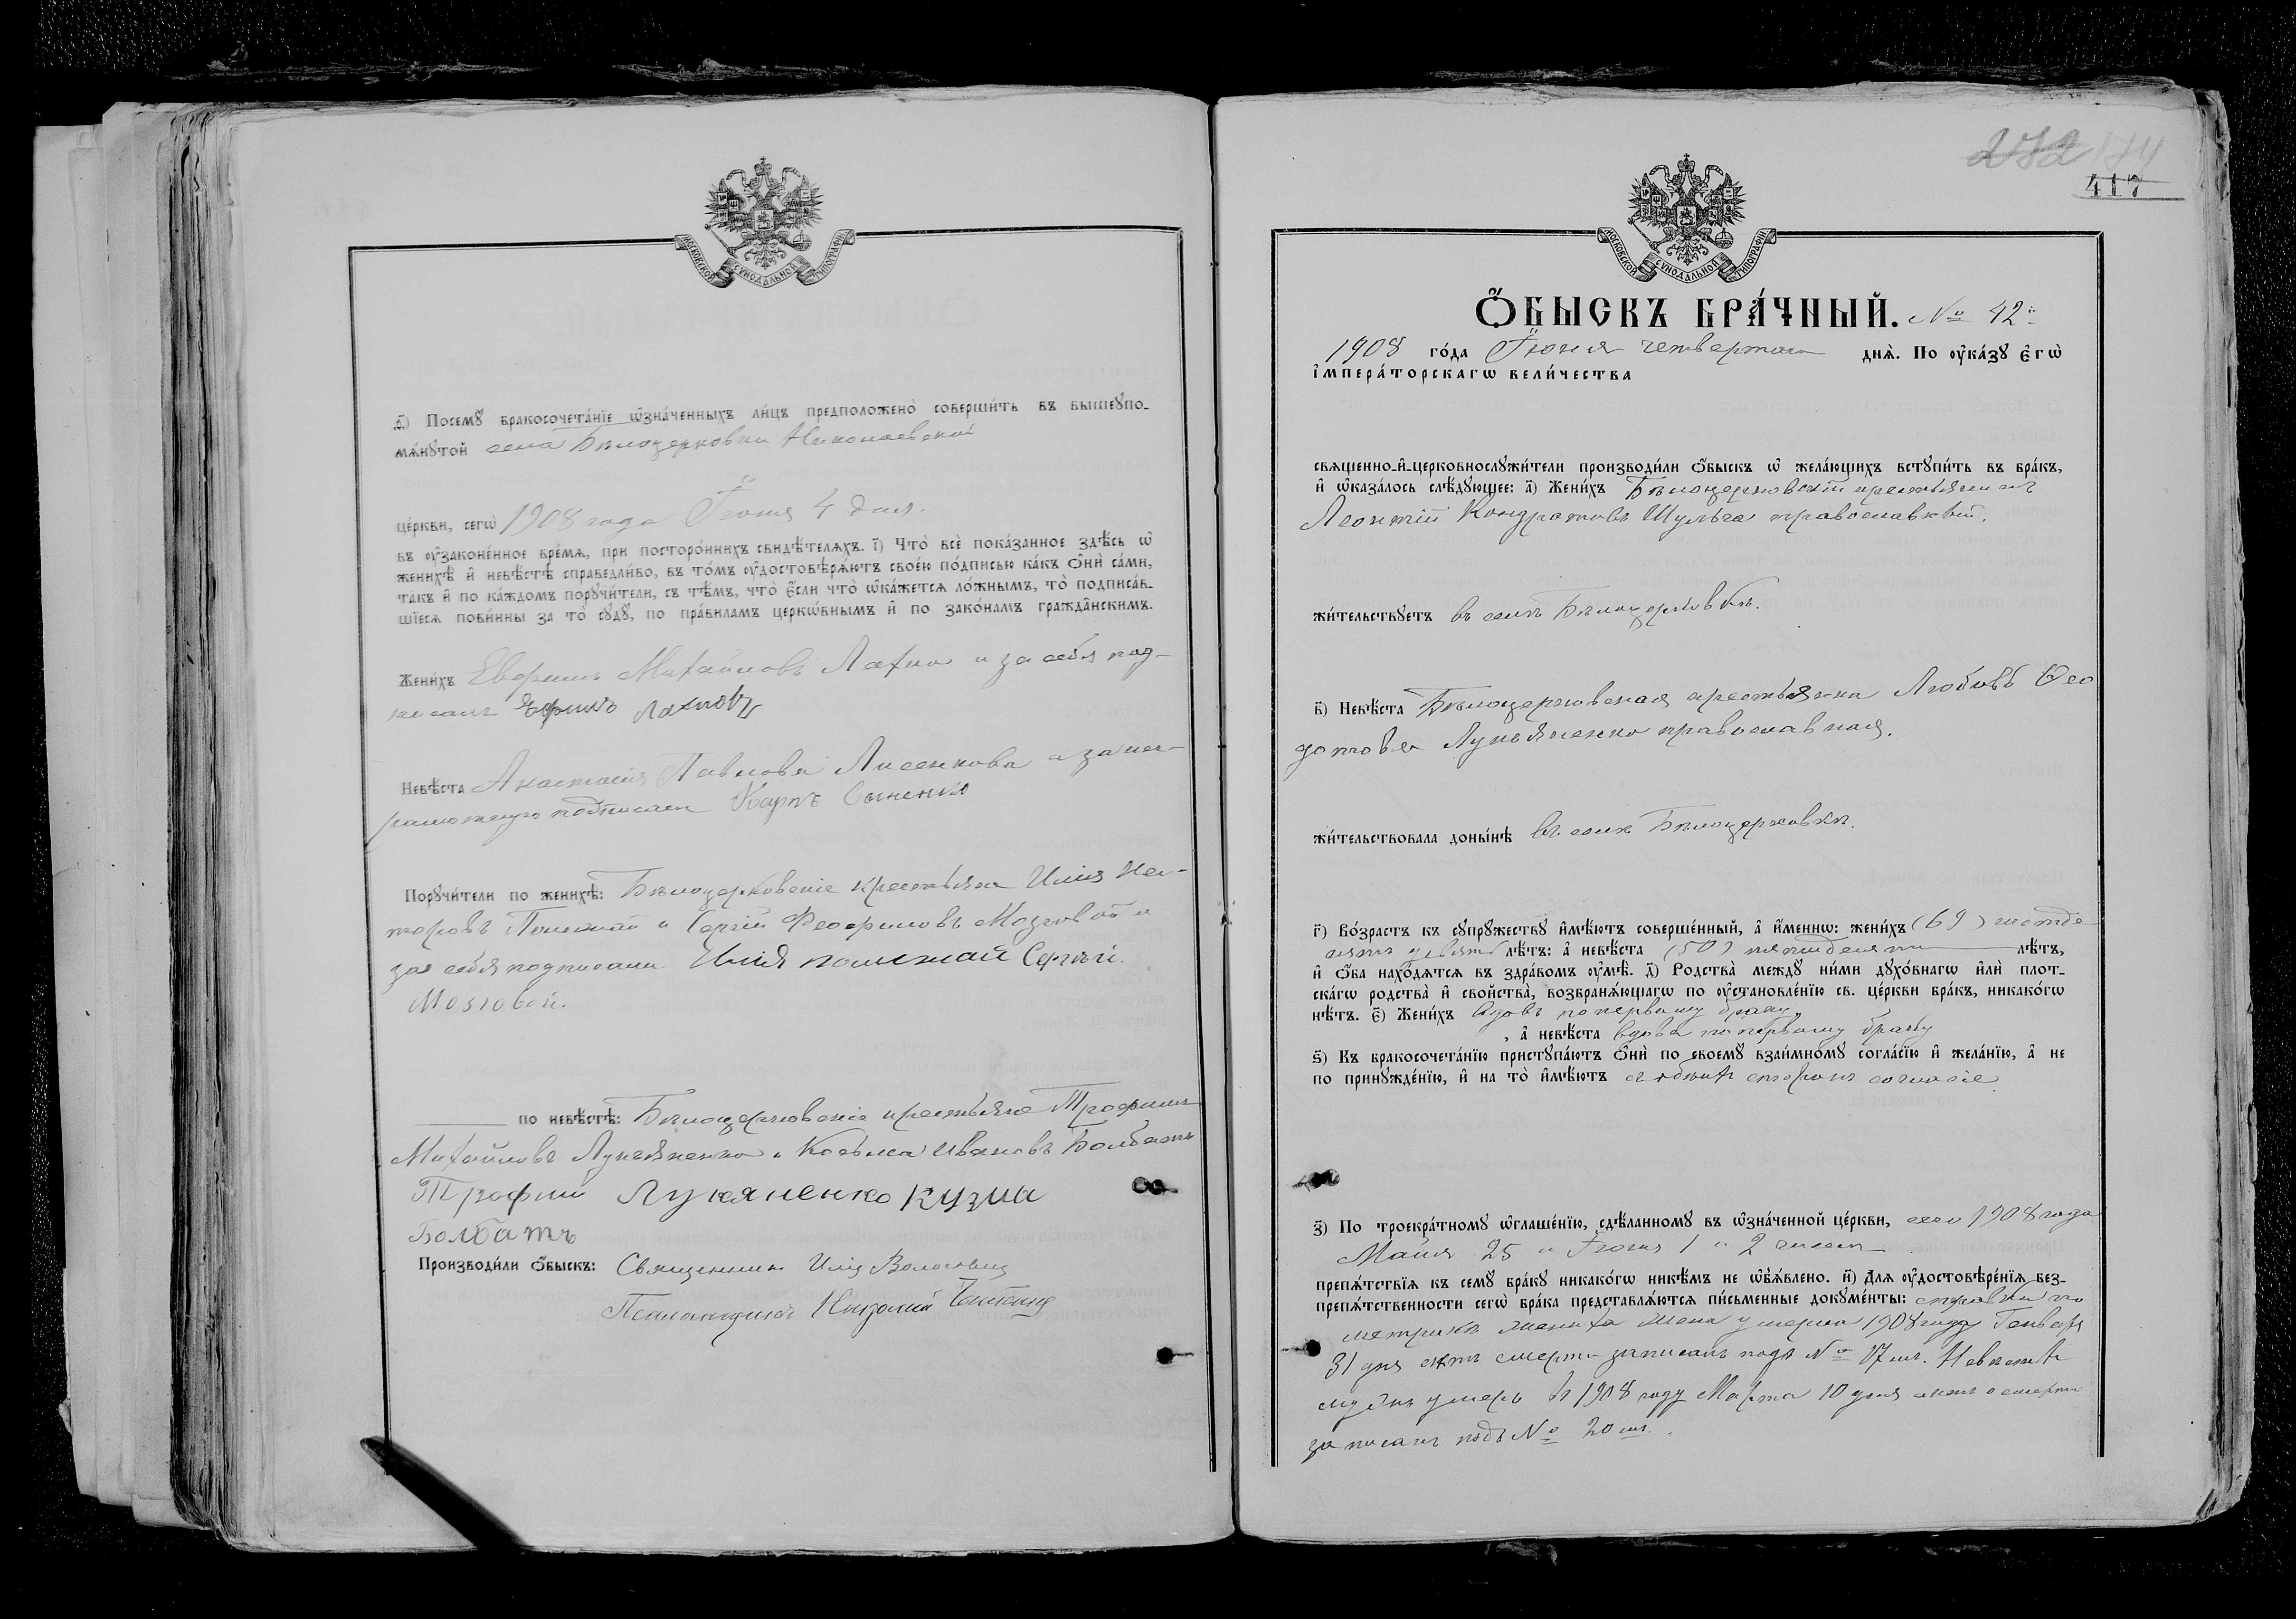 МОСКОВСКОЙ СѴНОДАЛЬНОЙ ТИПОГРАФІИ
ѳ҃) Посемꙋ̀ бракосочета́нїе ѡ҆зна́ченныхъ ли́цъ предположено̀ соверши́ть въ вышеꙋпо-
мѧ́нꙋтой села Бѣлоцерковки Николаевской
це́ркви, сегѡ̀ 1908 года Іюня 4 дня.
въ ᲂу҆зако́нѣнное вре́мѧ, при посторо́ннихъ свидѣ́телѧхъ. і҃) Что̀ всѐ пока́занное здѣ́сь ѡ҆
женихѣ̀ и҆ невѣ́стѣ справедли́во, въ то́мъ ᲂу҆достовѣрѧ́ютъ свое́ю по́дписью ка́къ ѻ҆нѝ са́ми,
та́къ и҆ по ка́ждомъ порꙋчи́тели, съ тѣ́мъ, что̀ є҆́сли что̀ ѡ҆ка́жетсѧ ло́жнымъ, то̀ подписа́в-
шїесѧ пови́нны за то̀ сꙋдꙋ̀, по пра́виламъ церкѡ́внымъ и҆ по зако́намъ гражда̂нскимъ.
Жени́хъ Евфимъ Михайловъ Лахно и за себя под-
писалъ Ефимъ Лахно
Невѣ́ста Анастасія Павлова Лисенкова а за не-
грамотную подписался Карпъ
Порꙋчи́тели по женихѣ̀: Бѣлоцерковскіе крестьяне Илія Нес-
торовъ и Сергій Феофиловъ Мозговой и
за себя подписали Илія Сергѣй
Мозговой.
по невѣ́стѣ: Бѣлоцерковскіе крестьяне Трофимъ
Михайловъ Лукьяненко и Косьма Ивановъ Болбатъ
Трофим Лукяненко Кузма
Болбатъ
Производи́ли ѻ҆́быскъ: Священникъ Илія
Псаломщикъ Николай
417
МОСКОВСКОЙ СѴНОДАЛЬНОЙ ТИПОГРАФІИ
Ѻ҆́БЫСКЪ БРА́ЧНЫЙ. № 42й
1908 го́да Іюня четвертаго днѧ̀. По ᲂу҆ка́зꙋ є҆гѡ̀
і҆мпера́торскагѡ вели́чества
свѧще́нно-и҆-церковнослꙋжи́тели производи́ли ѻ҆́быскъ ѡ҆ жела́ющихъ встꙋпи́ть въ бра́къ,
и҆ ѡ҆каза́лось слѣ́дꙋющее: а҃) Жени́хъ Бѣлоцерковскій крестьянинъ
Леонтій Кондратовъ Шульга православный.
жи́тельствꙋетъ въ селѣ Бѣлоцерковкѣ.
в҃) Невѣ́ста Бѣлоцерковская крестьянка Любовь Ѳео
дотова Лукьяненко православная.
жи́тельствовала донынѣ въ селѣ Бѣлоцерковкѣ.
г҃) Во́зрастъ къ сꙋпрꙋ́жествꙋ и҆мѣ́ютъ соверше́нный, а҆ и҆́меннѡ: жени́хъ (69) шестьде
сятъ девять лѣ́тъ: а҆ невѣ́ста (50) пятидесяти лѣ́тъ,
и҆ ѻ҆́ба нахо́дѧтсѧ въ здра́вомъ ᲂу҆мѣ̀. д҃) Родства̀ междꙋ̀ ни́ми дꙋхо́внагѡ и҆лѝ плот-
ска́гѡ родства̀ и҆ сво́йства̀, возбранѧ́ющагѡ по ᲂу҆становле́нїю св. це́ркви бра́къ, никако́гѡ
нѣ́тъ. є҃) Жени́хъ вдовъ по первому браку,
, а҆ невѣ́ста вдова по первому браку
ѕ҃) Къ бракосочета́нїю пристꙋпа́ютъ ѻ҆нѝ по своемꙋ̀ взаи́мномꙋ согла́сїю и҆ жела́нїю, а҆ не
по принꙋжде́нїю, и҆ на то̀ и҆мѣ́ютъ съ обѣихъ сторонъ согласіе
з҃) По троекра́тномꙋ ѡ҆глаше́нїю, сдѣ́ланномꙋ въ ѡ҆зна́ченной це́ркви, сего 1908 года
Маія 25 и Іюня 1 и 2 чиселъ
препѧ́тствїѧ къ семꙋ̀ бра́кꙋ никако́гѡ никѣ́мъ не ѡ҆б̾ѧ́влено. и҃) Длѧ ᲂу҆достовѣре́нїѧ без-
препѧ́тственности сегѡ̀ бра́ка представлѧ́ютсѧ пи́сьменные докꙋме́нты: справки по
метрикѣ жениха жена умерла 1908 года Генваря
31 дня актъ смерти записанъ подъ № 17мъ. Невѣсты
мужъ умеръ въ 1908 году Марта 10 дня актъ о смерти
записанъ подъ № 20мъ.